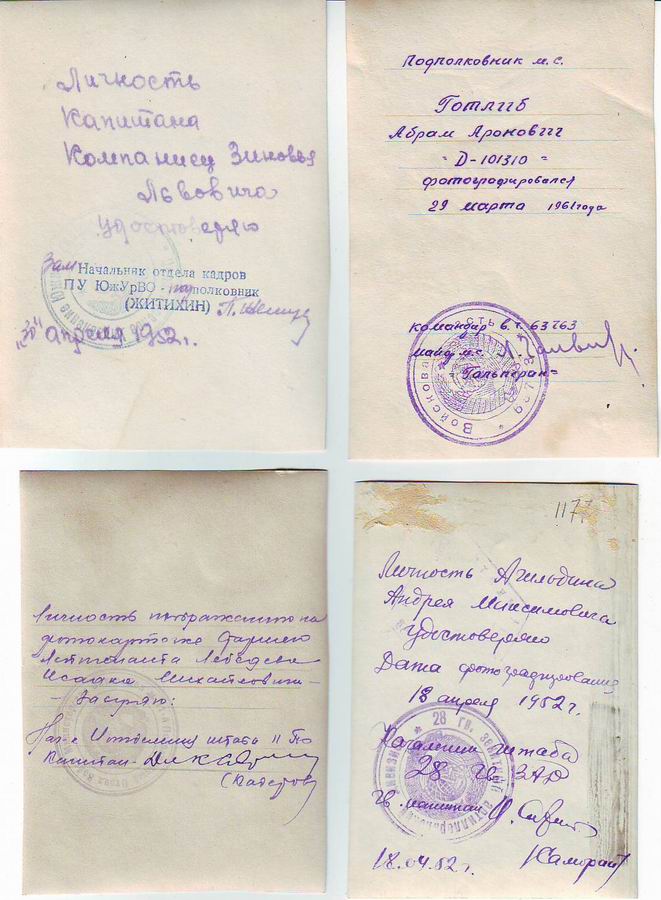 Личность
Капитана
Компаниец Зиновья
Львовича
удостоверяю
Зам Начальник отдела кадров
ПУ ЮжУрВО - подполковник
(ЖИТИХИН)
"30" апреля 1952г.
Подполковник м.с.
Готлиб
Абрам Аронович
"Д-101310"
фотографировался
29 марта 1961 года
командир в.ч. 63763
м.с.
Гальперин
Войсковая часть
63763
Личность изображенного на
фотокарточке старшего
лейтенанта Лебедева
Исаака Михайловича
заверяю:
штаба
Капитан
1177
Личность
Андрея Максимовича
удостоверяю
Дата фотографирования
18 апреля 1952г.
Начальник штаба
28 гв ЗАП
гв. капитан
18.04.52г.
28 гв. зенитный артиллерийский